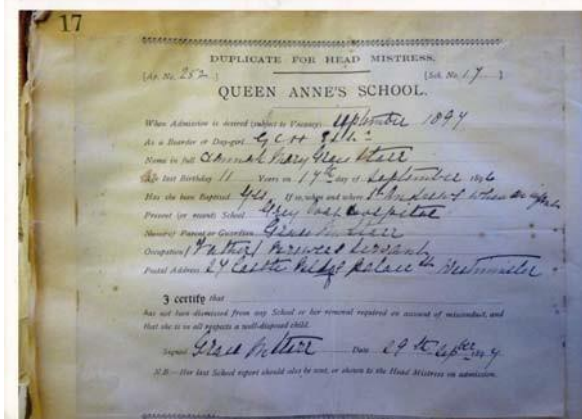 17
DUPLICATE FOR HEAD MISTRESS.
[Ap. No. 252] [Sch. No. 17]
QUEEN ANNE'S SCHOOL.
When Admission is desired (subject to Vacancy) September 1897
As a Boarder or Day-girl
Name in full Hannah Mary Grace Starr
Age last Birthday 11 Years on 17th day of September 1896
Has she been Baptised Yes If so, when and where St Andrew's when an infant
Present (or recent) School Grey Coat Hospital
Name of Parent or Guardian Grace M Starr
Occupation (Father) Servant
Postal Address 27 Castle Palace St Westminster
I certify that
has not been dismissed from any School or her removal required on account of misconduct, and
that she is in all respects a well-disposed child.
Signed Grace M Starr Date 29th Septber 1897
N.B.—Her last School report should also be sent, or shown to the Head Mistress on admission.